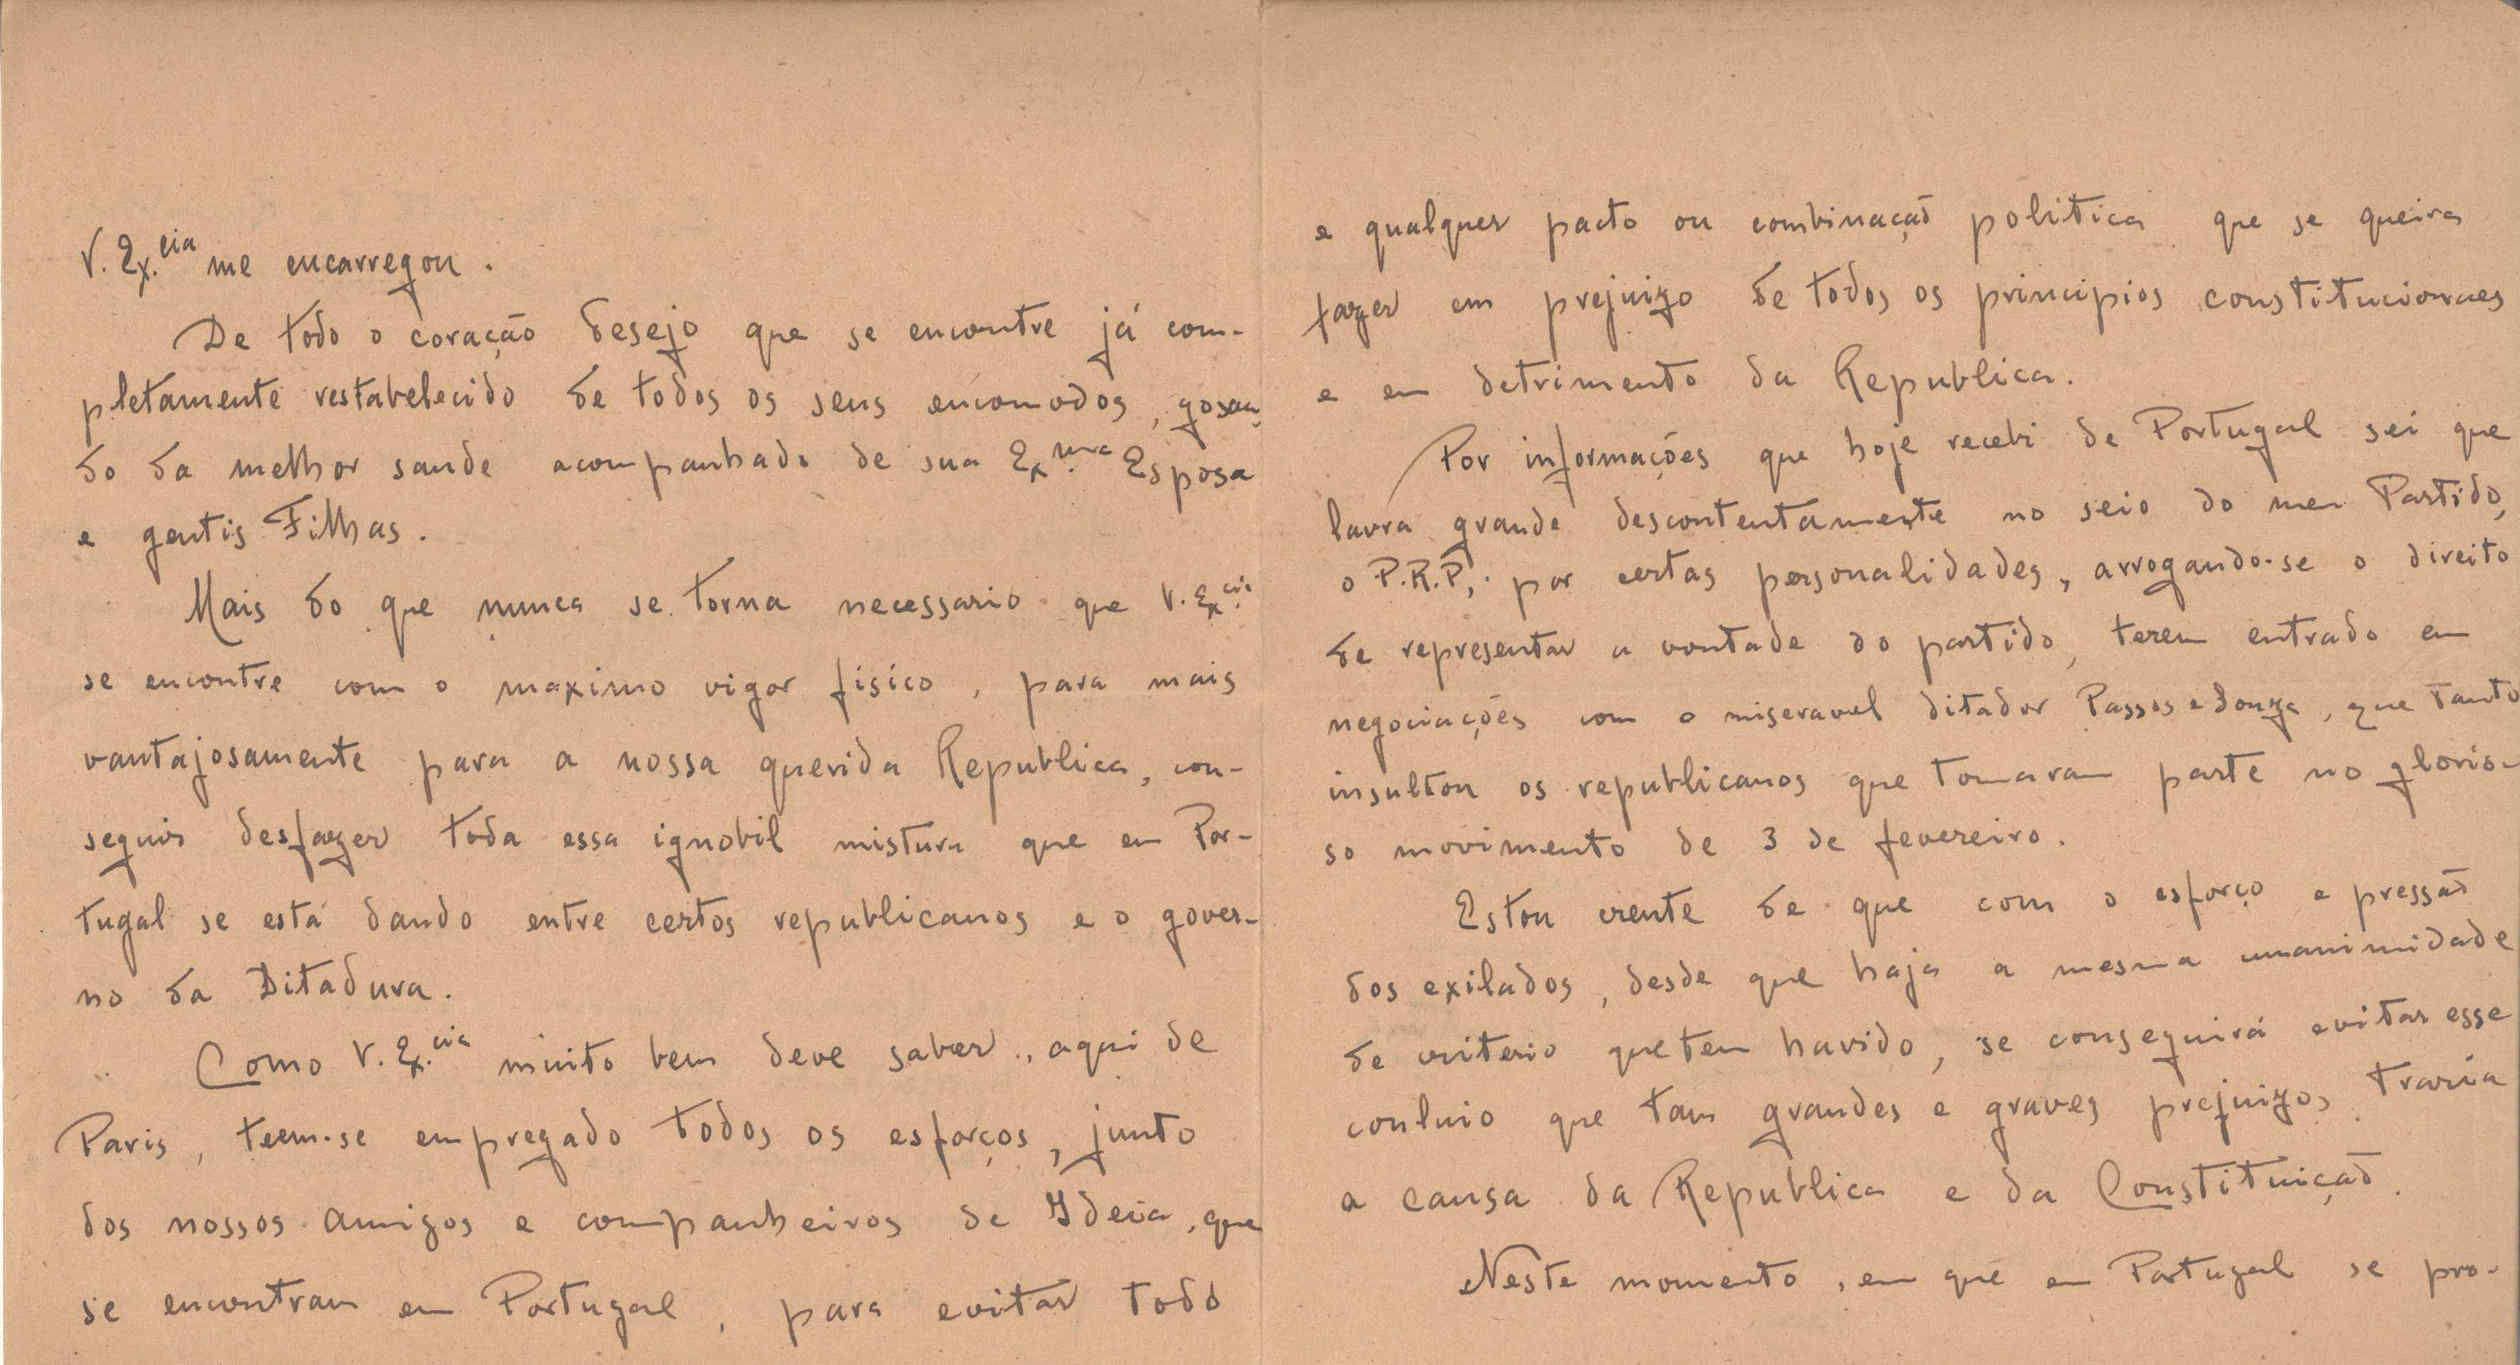 V. Ex.cia me encarregou.
De todo o coração desejo que se encontre já com-
pletamente restabelecido de todos os seus encomodos, gosan-
do da melhor saude acompanhado de sua Ex.ma Esposa
e gentis Filhas.
Mais do que nunca se torna necessario que V. Ex.cia
se encontre com o maximo vigor fisico, para mais
vantajosamente para a nossa querida Republica, con-
seguir desfazer toda essa ignobil mistura que em Por-
tugal se está dando entre certos republicanos e o gover-
no da Ditadura.
Como V. Ex.cia muito bem deve saber, aqui de
Paris, teem-se empregado todos os esforços, junto
dos nossos amigos e companheiros de Ideia, que
se encontram em Portugal, para evitar todo
e qualquer pacto ou combinação politica que se queira
fazer em prejuizo de todos os principios constitucionaes
e em detrimento da Republica.
Por informações que hoje recebi de Portugal sei que
lavra grande descontentamente no seio do meu Partido,
o P.R.P., por certas personalidades, arrogando-se o direito
de representar a vontade do partido, terem entrado em
negociações com o miseravel ditador Passos e Souza, que tanto
insultou os republicanos que tomaram parte no glorio-
so movimento de 3 de fevereiro.
Estou crente de que com o esforço e pressão
dos exilados, desde que haja a mesma unanimidade
de criterio que tem havido, se conseguirá evitar esse
conluio que tam grandes e graves prejuizos traria
a causa da Republica e da Constituição.
Neste momento, em que em Portugal se pro-